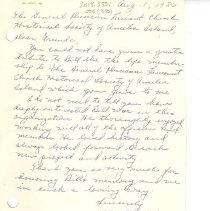 2019.33. Aug. 1, 1980
The General Duncan Lamont Clinch
Historical Society of Amelia Island,
Dear Friends:
You could not have given a greater
tribute to Bill the life member-
ship to The General Duncan Lamont
Clinch Historical Society of Amelia
Island which you gave to me
I do not need to tell you how
deeply interested Bill was in the
organization. He thoroughly enjoyed
working with all of the officers and
members on local history and
always looked forward to each
new project and activity.
Thank you so very much for
honoring Bill's memory and me
in such a loving way
Sincerely